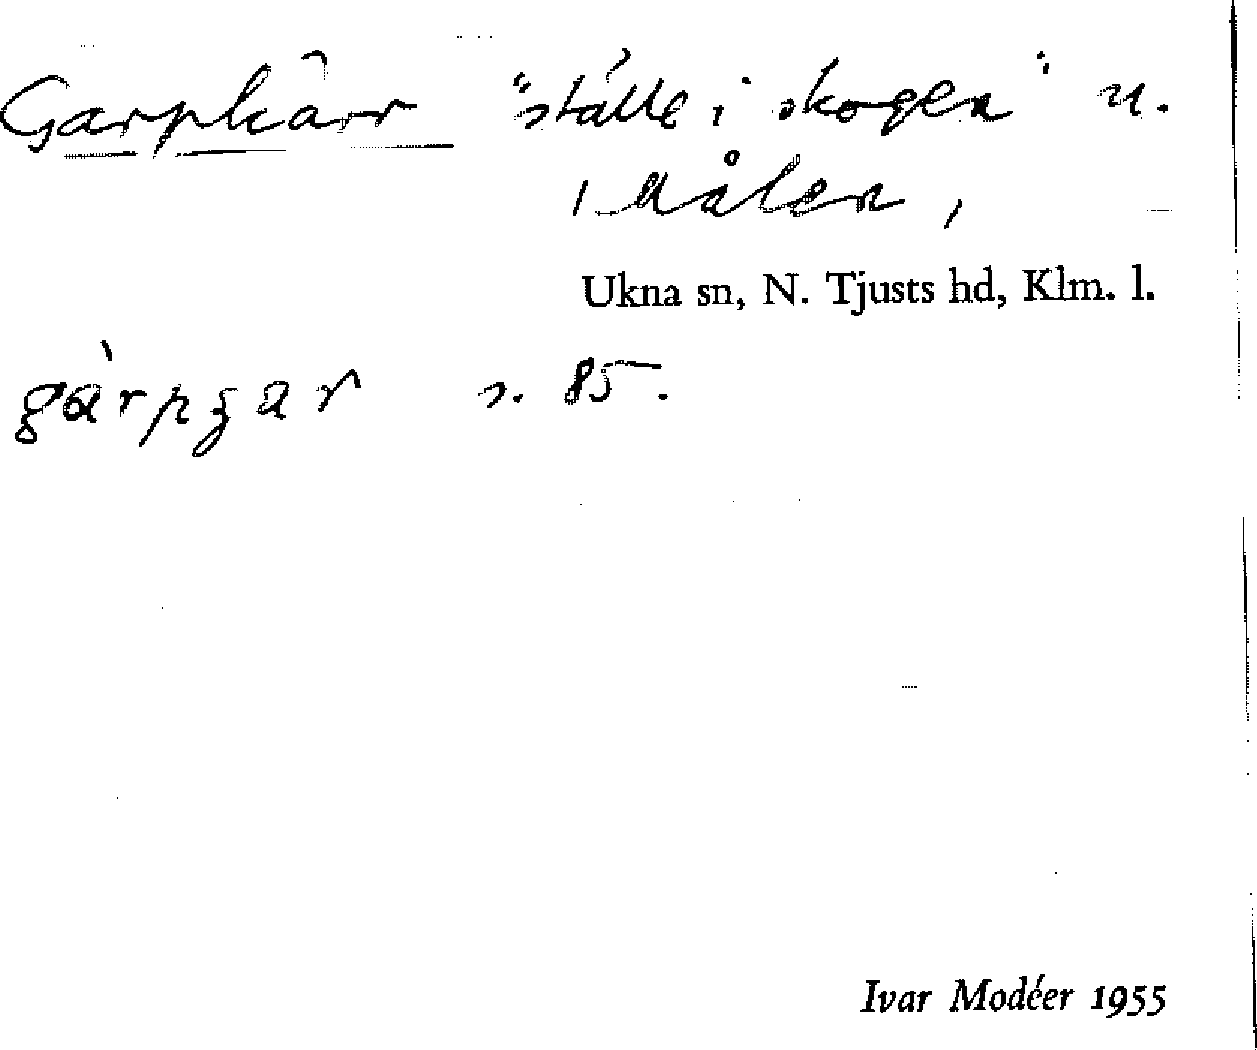 Garpkärr "ställe i skogen" u.
i Målen,
Ukna sn, N. Tjusts hd, Klm. l.
s. 85.
Ivar Modéer 1955